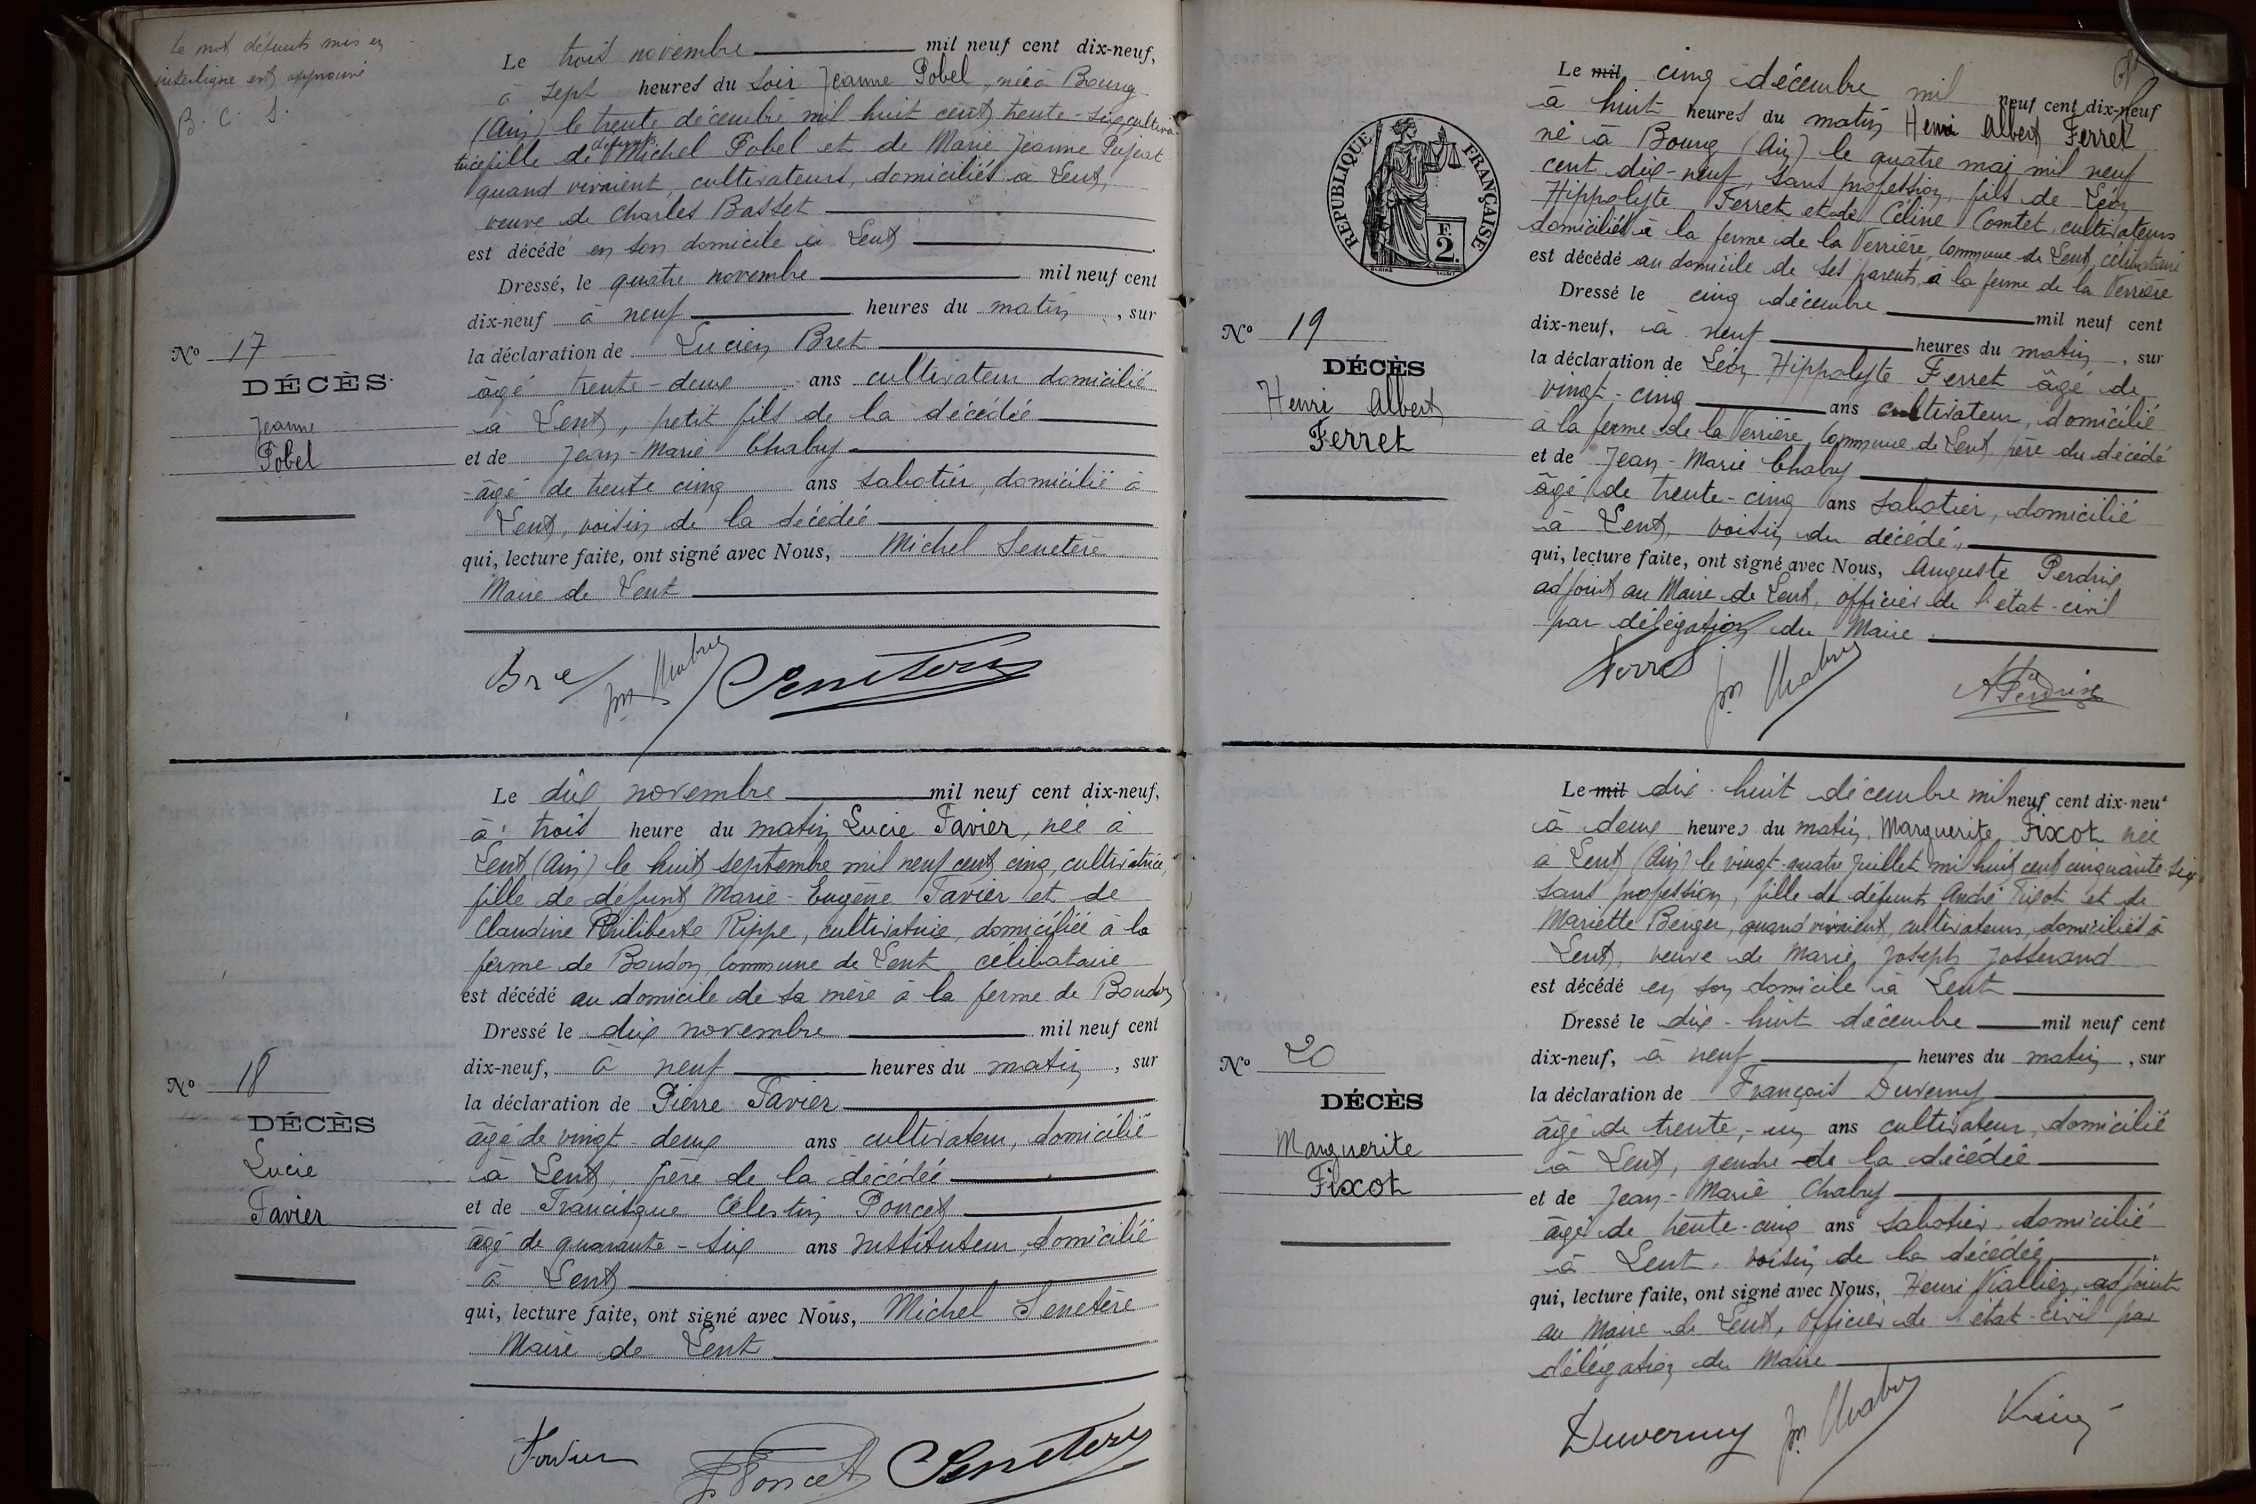 Le mot défunts mis en
interligne est approuvé
B. C. S.
Le trois novembre mil neuf cent dix-neuf,
à sept heures du soir Jeanne Pobel, née à Bourg
(Ain) le trente décembre mil huit cent trente-six, cultiva-
trice fille de défunts Michel Pobel et de Marie Jeanne Pujeat
quand vivaient, cultivateurs, domiciliés à Lent,
veuve de Charles Basset
est décédé en son domicile à Lent
Dressé, le quatre novembre mil neuf cent
dix-neuf à neuf heures du matin, sur
la déclaration de Lucien Bret
âgé trente-deux ans cultivateur domicilié
à Lent, petit fils de la décédée
et de Jean-Marie Chabry
âgé de trente cinq ans sabotier, domicilié à
Lent, voisin de la décédée
qui, lecture faite, ont signé avec Nous, Michel Senetère
Maire de Lent
No 17
DÉCÈS
Jeanne
Pobel
Bret Jm Chabry Senetère
Le dix novembre mil neuf cent dix-neuf,
à trois heure du matin Lucie Favier, née à
Lent (Ain) le huit septembre mil neuf cent cinq, cultivatrice,
fille de défunt Marie-Eugène Favier et de
Claudine Philiberte Rippe, cultivatrice, domiciliée à la
ferme de Boudon, Commune de Lent célibataire
est décédé au domicile de sa mère à la ferme de Boudon
Dressé le dix novembre mil neuf cent
dix-neuf, à neuf heures du matin, sur
la déclaration de Pierre Favier
âgé de vingt-deux ans cultivateur, domicilié
à Lent, frère de la décédée
et de Francisque Célestin Poncet
âgé de quarante-six ans instituteur, domicilié
à Lent
qui, lecture faite, ont signé avec Nous, Michel Senetère
Maire de Lent
No 18
DÉCÈS
Lucie
Favier
Favier Poncet Senetère
RÉPUBLIQUE FRANÇAISE
F.
2.
Le mil cinq décembre mil neuf cent dix-neuf
à huit heures du matin Henri Albert Ferret
né à Bourg (Ain) le quatre mai mil neuf
cent dix-neuf, sans profession, fils de Léon
Hippolyte Ferret et de Céline Comtet, cultivateurs
domiciliés à la ferme de la Verrière, Commune de Lent, célibataire
est décédé au domicile de ses parents, à la ferme de la Verrière
Dressé le cinq décembre mil neuf cent
dix-neuf, à neuf heures du matin, sur
la déclaration de Léon Hippolyte Ferret âgé de
vingt-cinq ans cultivateur, domicilié
à la ferme de la Verrière, Commune de Lent, père du décédé
et de Jean-Marie Chabry
âgé de trente-cinq ans sabotier, domicilié
à Lent, voisin du décédé,
qui, lecture faite, ont signé avec Nous, Auguste Perdrix
adjoint au Maire de Lent, officier de l'état-civil
par délégation du Maire
No 19
DÉCÈS
Henri Albert
Ferret
Ferret Jm Chabry A Perdrix
Le mil dix-huit décembre mil neuf cent dix-neuf
à deux heures du matin, Marguerite Fixot née
à Lent (Ain) le vingt-quatre juillet mil huit cent cinquante-six
sans profession, fille de défunts André Fixot et de
Mariette Berger, quand vivaient, cultivateurs, domiciliés à
Lent, veuve de Marie Joseph Josserand
est décédé en son domicile à Lent
Dressé le dix-huit décembre mil neuf cent
dix-neuf, à neuf heures du matin, sur
la déclaration de François Duverny
âgé de trente-un ans cultivateur, domicilié
à Lent, gendre de la décédée
et de Jean-Marie Chabry
âgé de trente-cinq ans sabotier, domicilié
à Lent, voisin de la décédée
qui, lecture faite, ont signé avec Nous, Henri Viallier, adjoint
au Maire de Lent, officier de l'état-civil par
délégation du Maire
No 20
DÉCÈS
Marguerite
Fixot
Duverny Jm Chabry